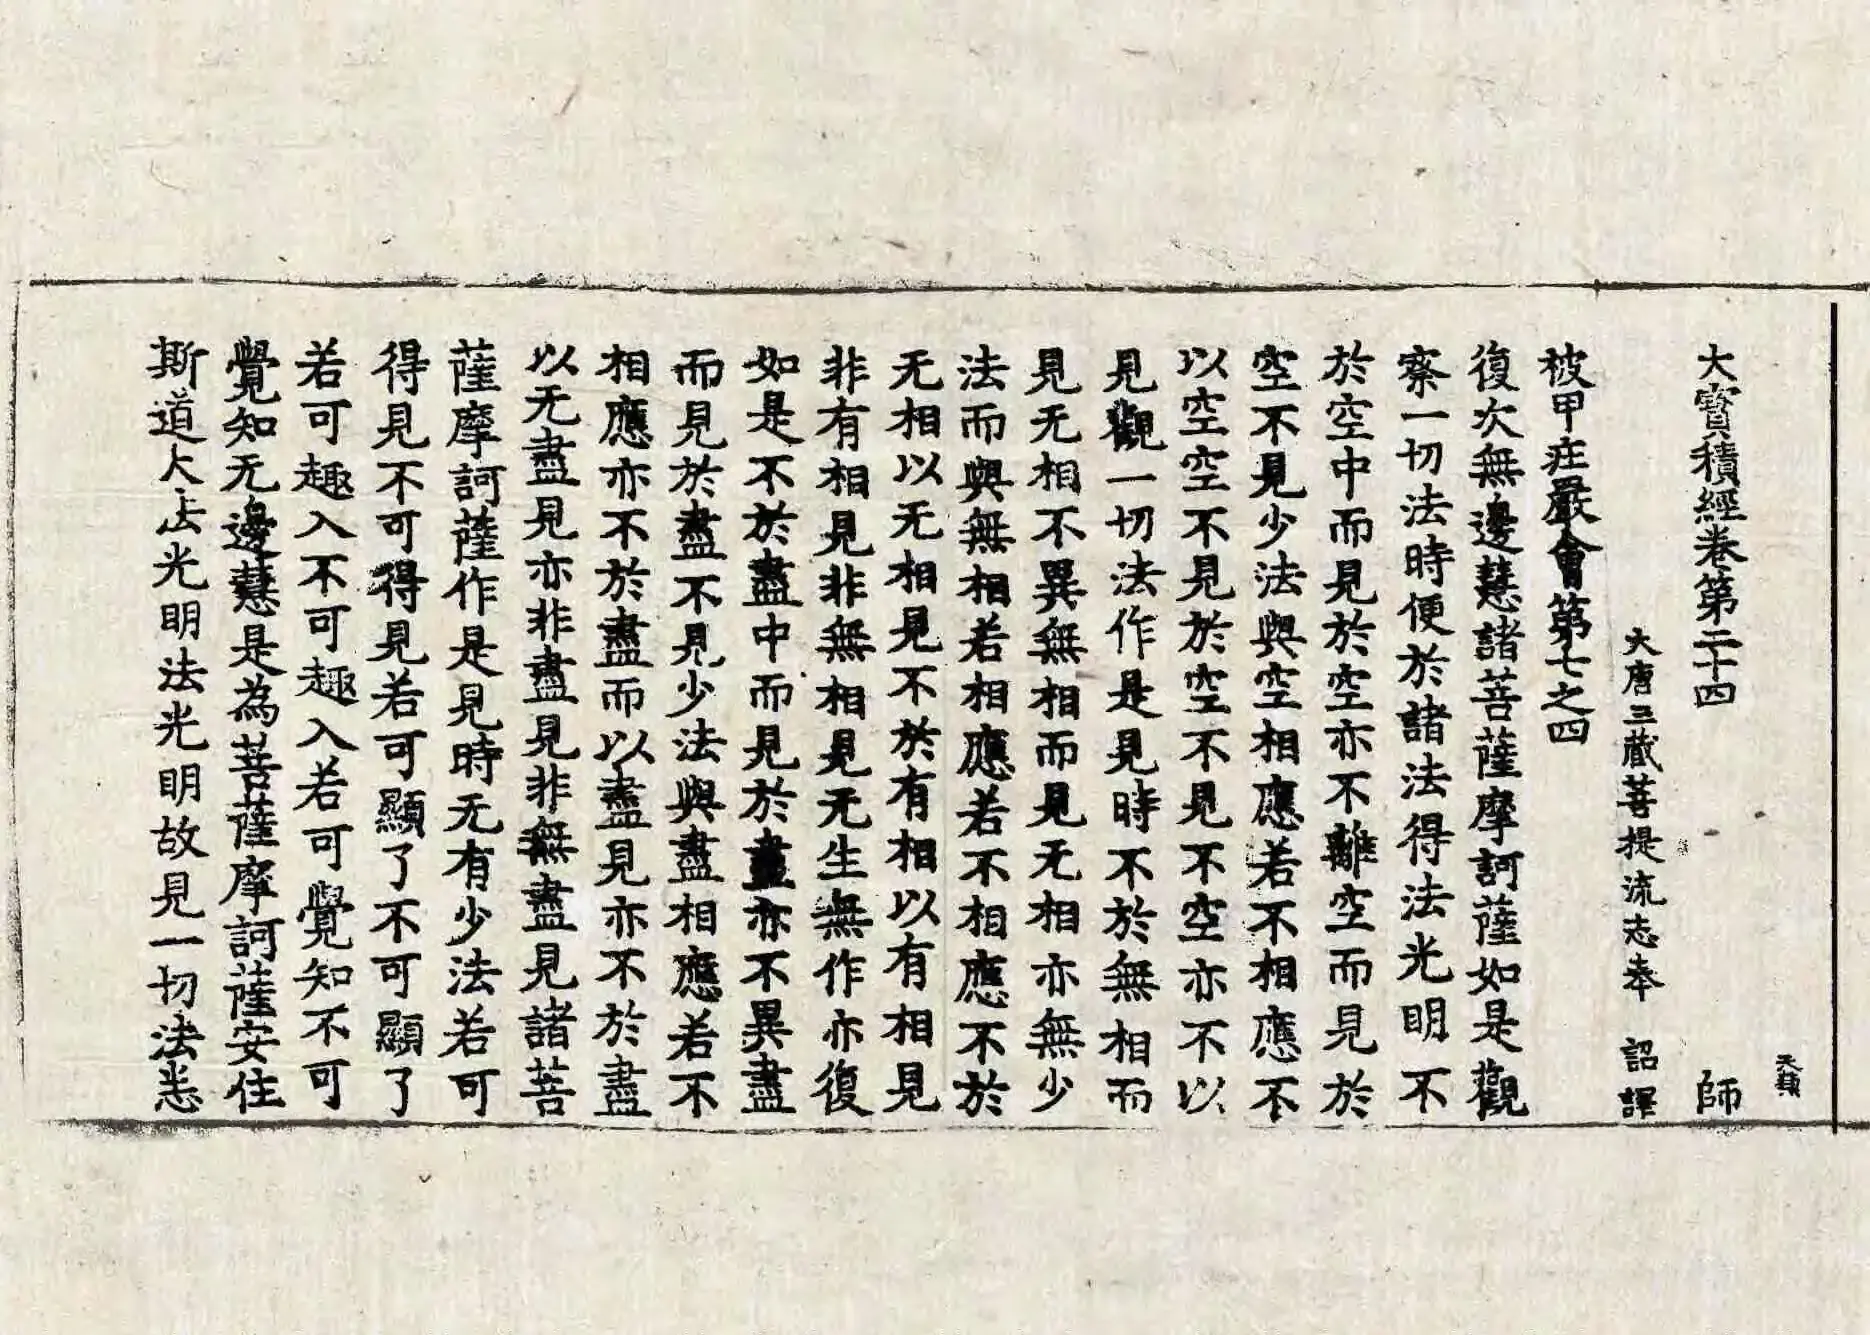 大寶積經卷第二十四 師
大唐三藏菩提流志奉 詔譯
被甲莊嚴會第七之四
復次無邊慧諸菩薩摩訶薩如是觀
察一切法時便於諸法得法光明不
於空中而見於空亦不離空而見於
空不見少法與空相應若不相應不
以空空不見於空不見不空亦不以
見觀一切法作是見時不於無相而
見无相不異無相而見无相亦無少
法而與無相若相應若不相應不於
无相以无相見不於有相以有相見
非有相見非無相見无生無作亦復
如是不於盡中而見於盡亦不異盡
而見於盡不見少法與盡相應若不
相應亦不於盡而以盡見亦不於盡
以无盡見亦非盡見非無盡見諸菩
薩摩訶薩作是見時无有少法若可
得見不可得見若可顯了不可顯了
若可趣入不可趣入若可覺知不可
覺知无邊慧是為菩薩摩訶薩安住
斯道大法光明法光明故見一切法悉